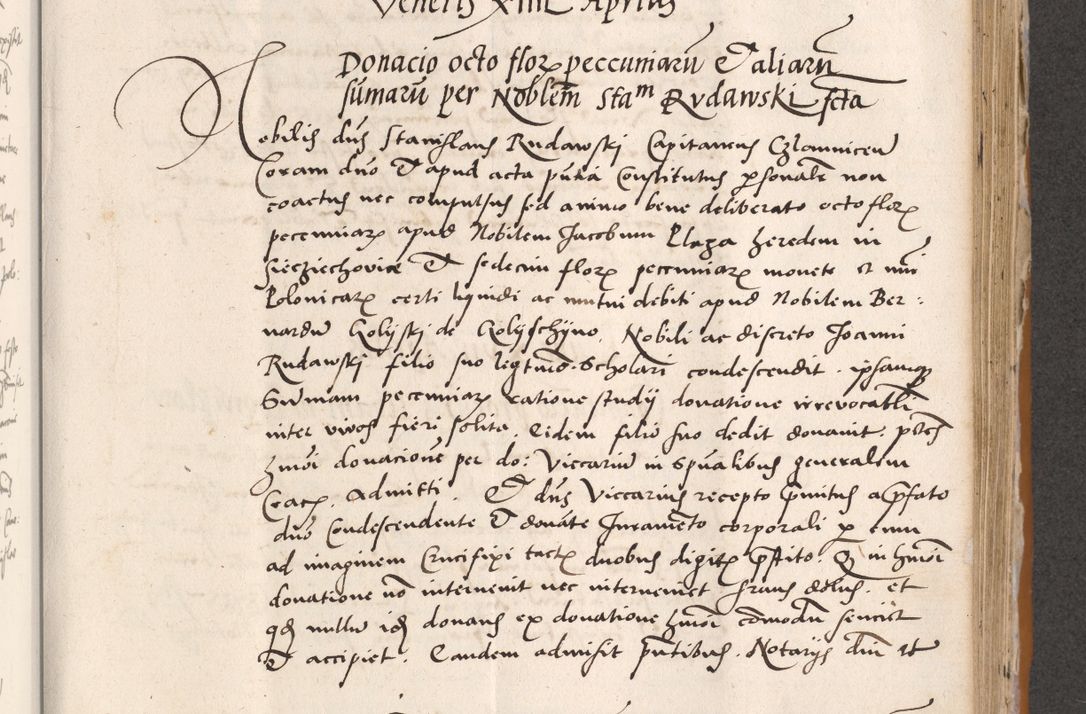 Veneris XIIII Aprilis
Donacio octo flor peccuniarũ Et aliarũ
sumarũ per Noblem Stam Rudawski fcta
Nobilis dns Stanislaus Rudawski Capitaneus Czlamnicen
Coram dno Et apud acta pnta Constitutus psonalr non
coactus nec compulsus sed animo bene deliberato octo flor
pecuniar apud Nobilem Jacobum Plaza heredem in
Sieziechovicze Et sedecim flor pecuniar monete et nui
Polonicar certi liquidi ac mutui debiti apud Nobilem Ber:
nardũ Golyski de Golyschyno. Nobili ac discreto Joanni
Rudawskj filio suo legtimo. Scholari condescendit. ipsamq
Sũmam pecuniar ratione studij donatione irrevocabli
inter vivos fieri solita. Eidem filio suo dedit donavit. ptes
hmoi donacione per do: Viccariũ in Spualibus generalem
Crac. admitti. Et dns Viccarius recepto pmitus a pfato
dno Condescendente Et donãte Juramẽto corporali p eum
ad imaginem Crucifixi tactis duobus digitis pstito. Q in hmoi
donatione nõ intervenit nec interveniet fraus dolus. et
qd nullũ idem donans ex donatione hmoi cõmodũ senciet
Et accipiet. Eandem admisit pntibus. Notarijs dni et